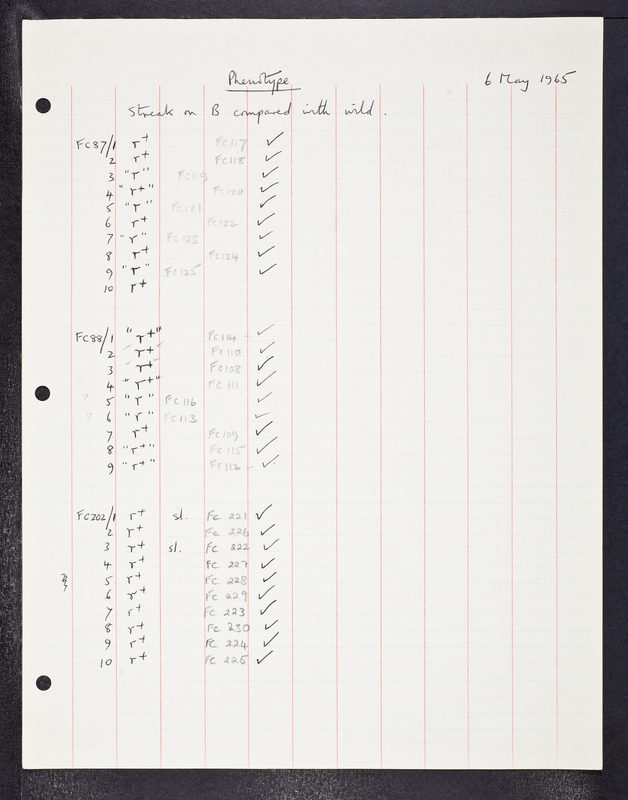 Phenotype 6 May 1965
Streak on B compared with wild.
FC87/1 r+ FC117 ✓
2 r+ FC118 ✓
3 "r" FC119 ✓
4 "r+" FC120 ✓
5 "r" FC121 ✓
6 r+ FC122 ✓
7 "r" FC123 ✓
8 r+ FC124 ✓
9 "r" FC125 ✓
10 r+
FC88/1 "r+" FC114 - ✓
2 "r+" FC110 ✓
3 "r+" FC108 ✓
4 "r+" FC111 ✓
? 5 "r" FC116 ✓
? 6 "r" FC113 ✓
7 r+ FC109 ✓
8 "r+" FC115 ✓
9 "r+" FC112 - ✓
FC202/1 r+ sl. FC 221 ✓
2 r+ FC 226 ✓
3 r+ sl. FC 222 ✓
4 r+ FC 227 ✓
5 r+ FC 228 ✓
6 r+ FC 229 ✓
7 r+ FC 223 ✓
8 r+ FC 230 ✓
9 r+ FC 224 ✓
10 r+ FC 225 ✓